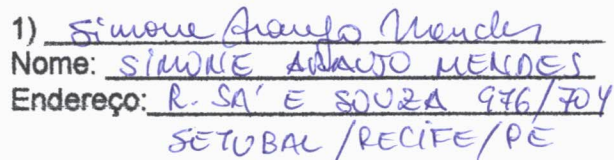 1) Simone Araujo Mendes
Nome: SIMONE ARAUJO MENDES
Endereço: R. SA' E SOUZA 976/704
SETUBAL /RECIFE/PE